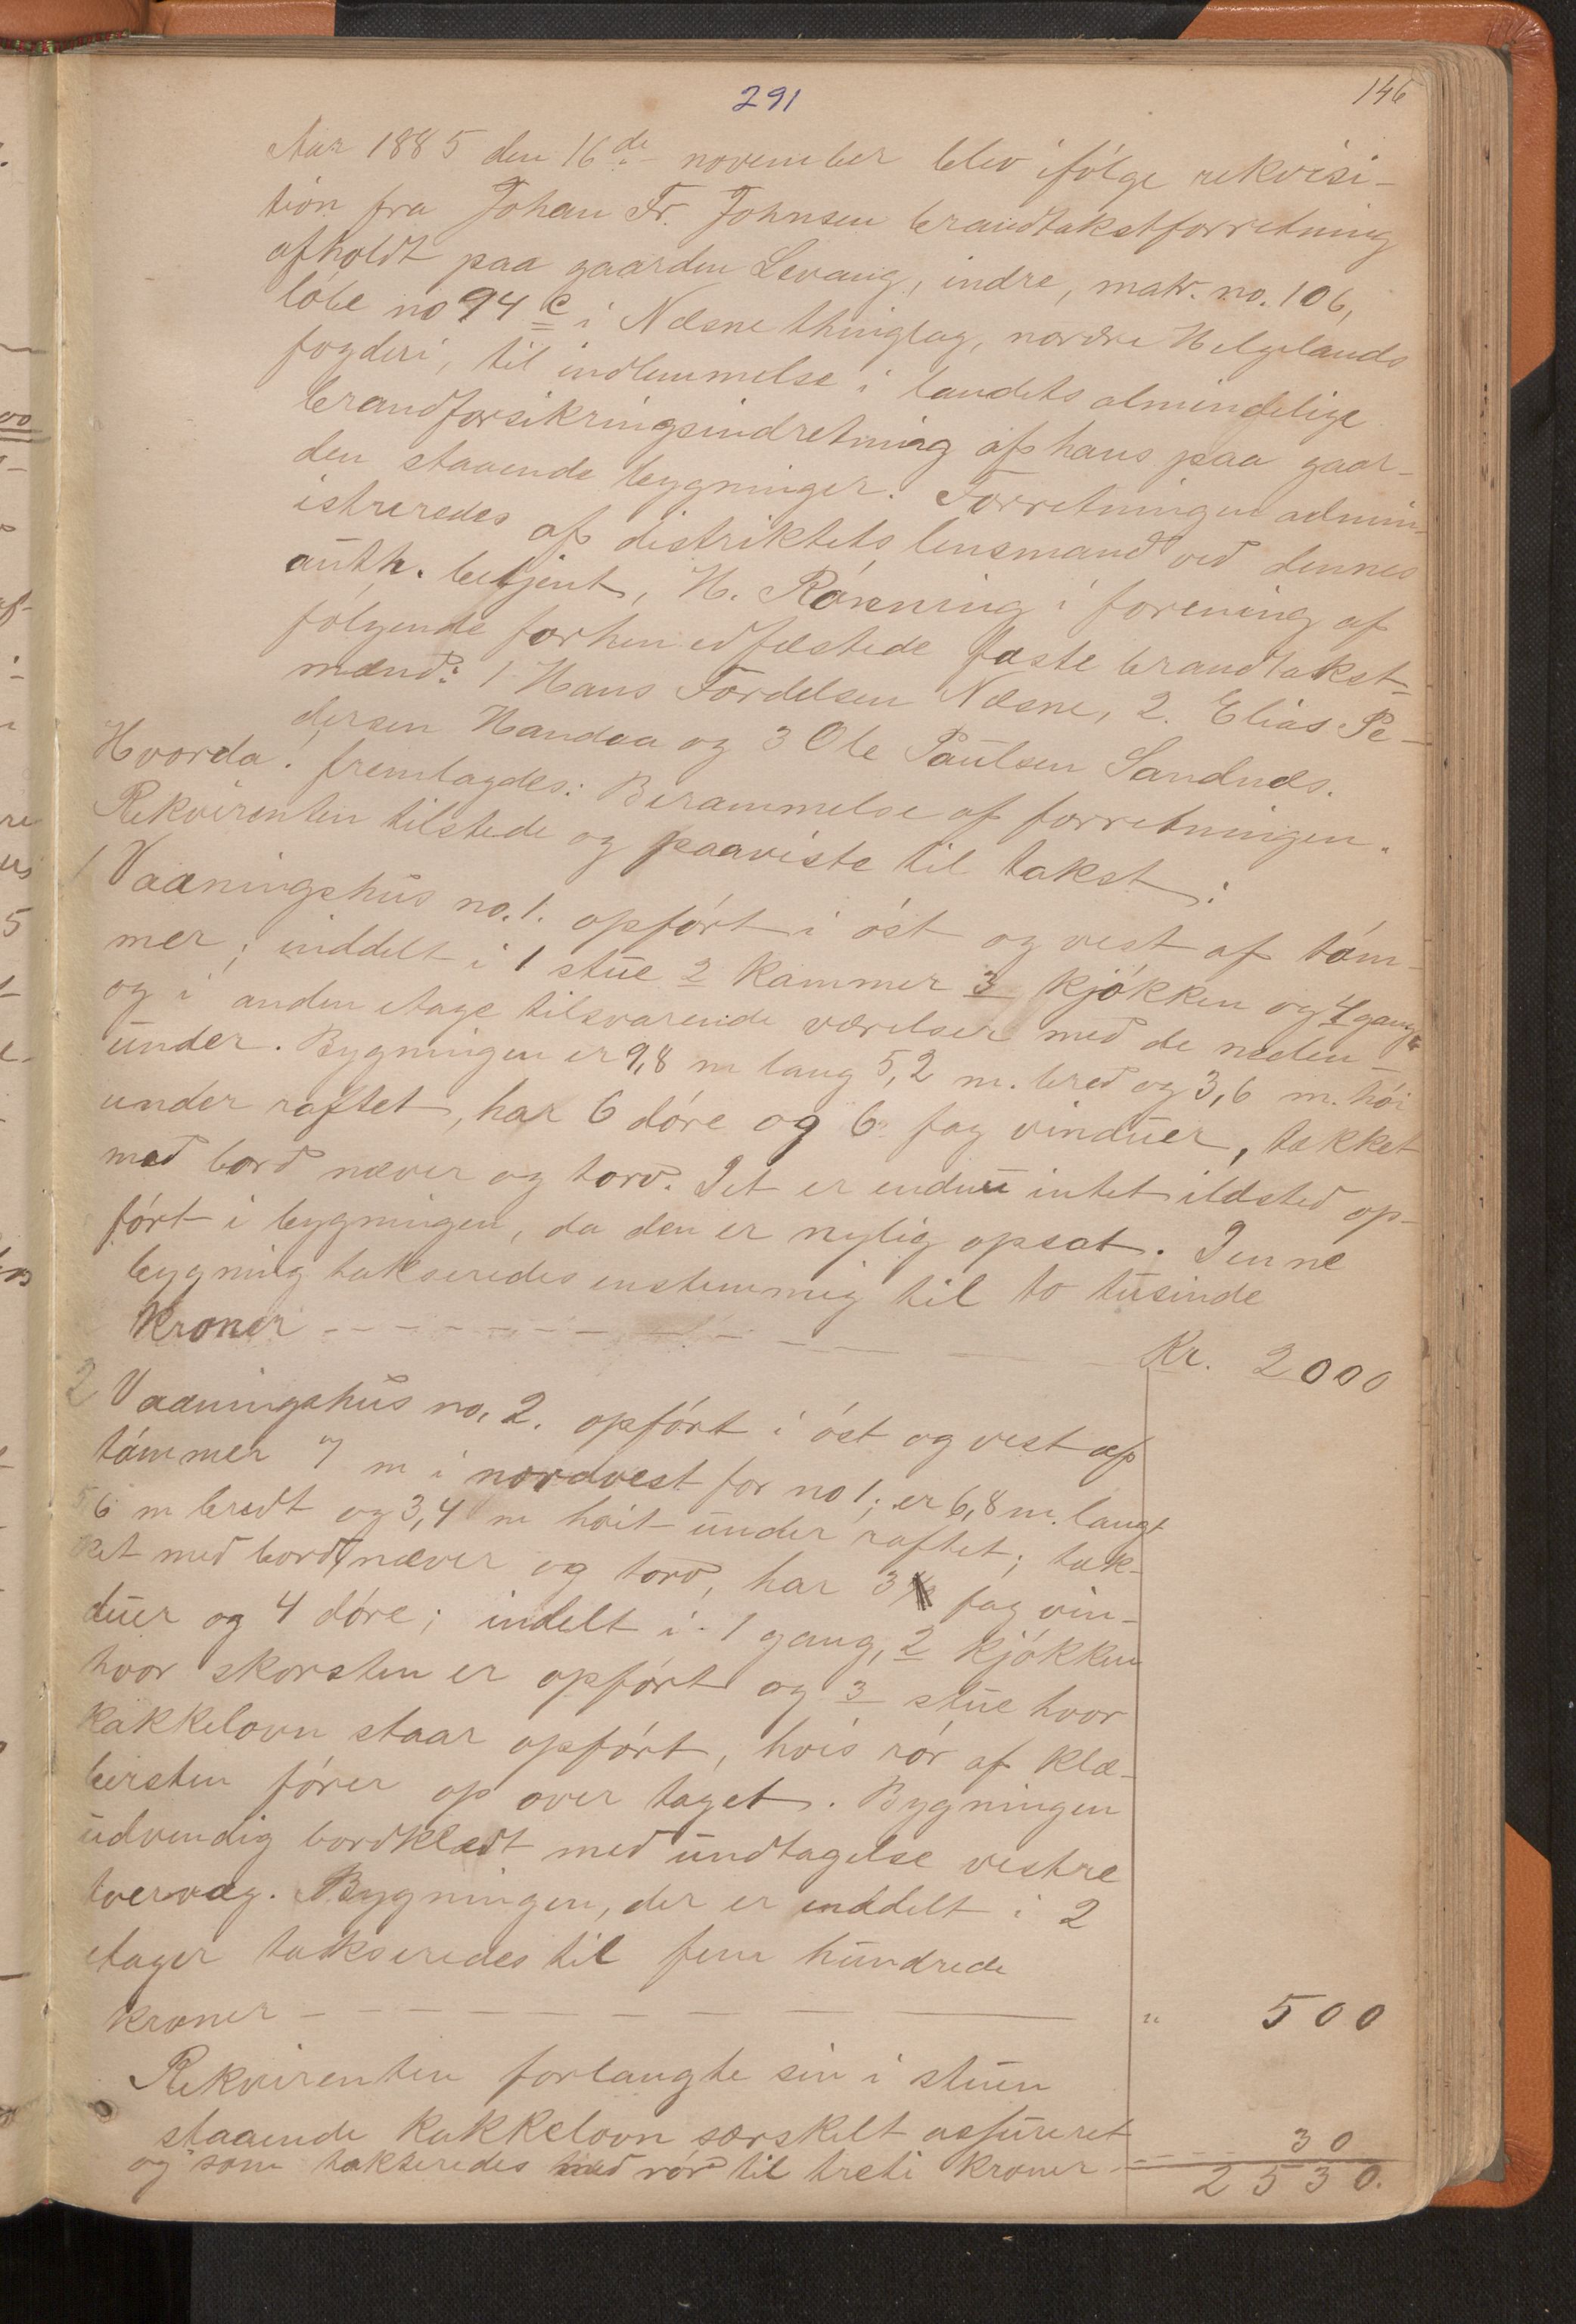 291
146
Aar 1885 den 16de november blev ifölge rekvisi-
tion fra Johan Fr. Johnsen brandtakstforretning
afholdt paa gaarden Levang, indre, matr. no. 106,
löbe no 94 c i Næsne thinglag, nordre Helgelands
fogderi, til indlemmelse i landets almindelige
brandforsikringsindretning af hans paa gaar-
den staaende bygninger. Forretningen admin-
istreredes af distriktets lensmand ved dennes
auth. betjent, H. Rönning i forening af
fölgende forhen edfæstede faste brandtakst-
mænd: 1 Hans Tordelsen Næsne, 2. Elias Pe-
dersen Handaa og 3 Ole Paulsen Sandnes.
Hvorda! fremlagdes: Berammelse af forretningen.
Rekvirenten tilstede og paaviste til takst:
1 Vaaningshus no. 1. opfört i öst og vest af töm-
mer; inddelt i 1 stue 2 kammer 3 kjökken og 4 gang
og i anden etage tilsvarende værelser med de neden-
under. Bygningen er 9,8 m lang 5,2 m. bred og 3,6 m. höi
under raftet, har 6 döre og 6 fag vinduer, takket
med bord næver og torv. Det er endnu intet ildsted op-
fört i bygningen, da den er nylig opsat. Denne
bygning takseredes enstemmig til to tusinde
kroner - - - - - - - Kr. 2000
2 Vaaningshus no. 2. opfört i öst og vest af
tömmer 7 m i nordvest for no 1; er 6,8 m. langt
5,6 m bredt og 3,4 m höit under raftet; tak-
ket med bord, næver og torv, har 3 fag vin-
duer og 4 döre; indelt i 1 gang, 2 kjökken
hvor skorsten er opfört og 3 stue hvor
kakkelovn staar opfört, hvis rör af klæ-
bersten förer op over taget. Bygningen
udvendig bordklædt med undtagelse vestre
tvervæg. Bygningen, der er inddelt i 2
etager takseredes til fem hundrede
kroner - - - - - - " 500
Rekvirenten forlangte sin i stuen
staaende kakkelovn særskilt assureret
og som takseredes med rör til treti kroner - - - 30
2530.